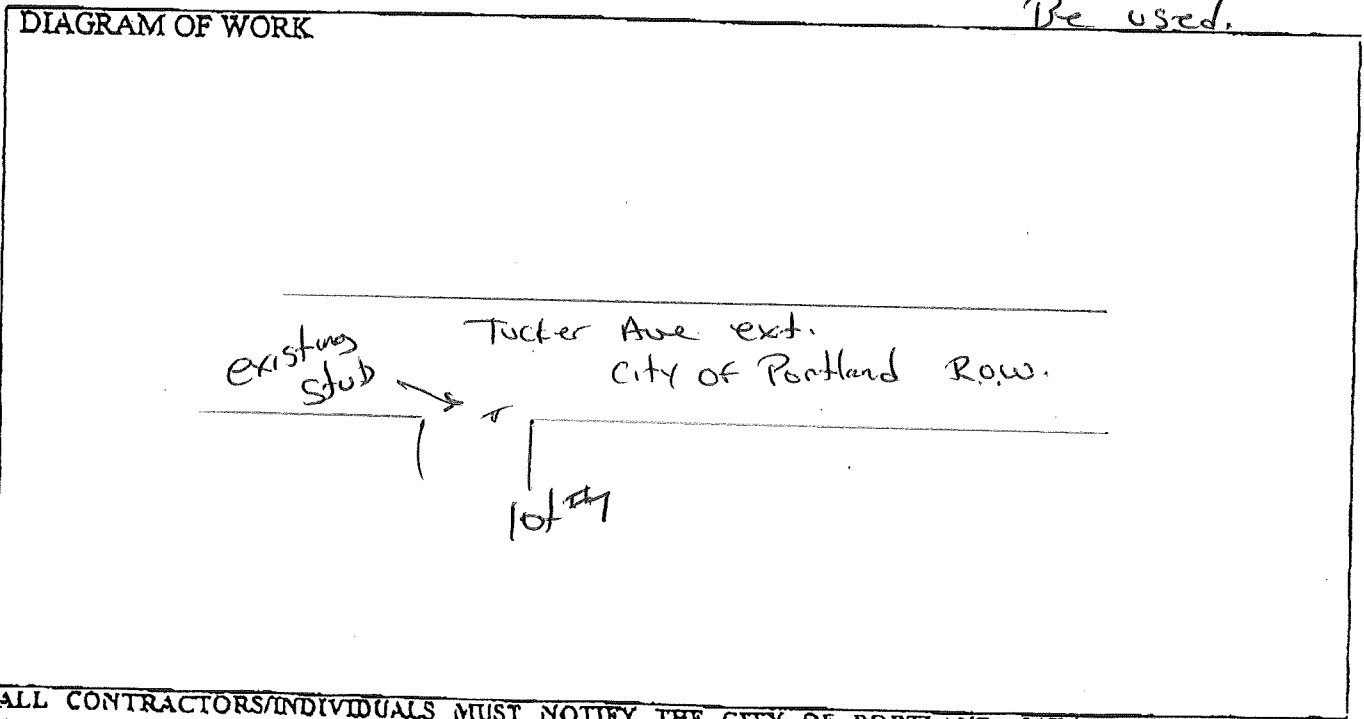 Be used.
DIAGRAM OF WORK
Tucker Ave ext.
City of Portland R.O.W.
existing
stub
lot #7
ALL CONTRACTORS/INDIVIDUALS MUST NOTIFY THE CITY OF PORTLAND